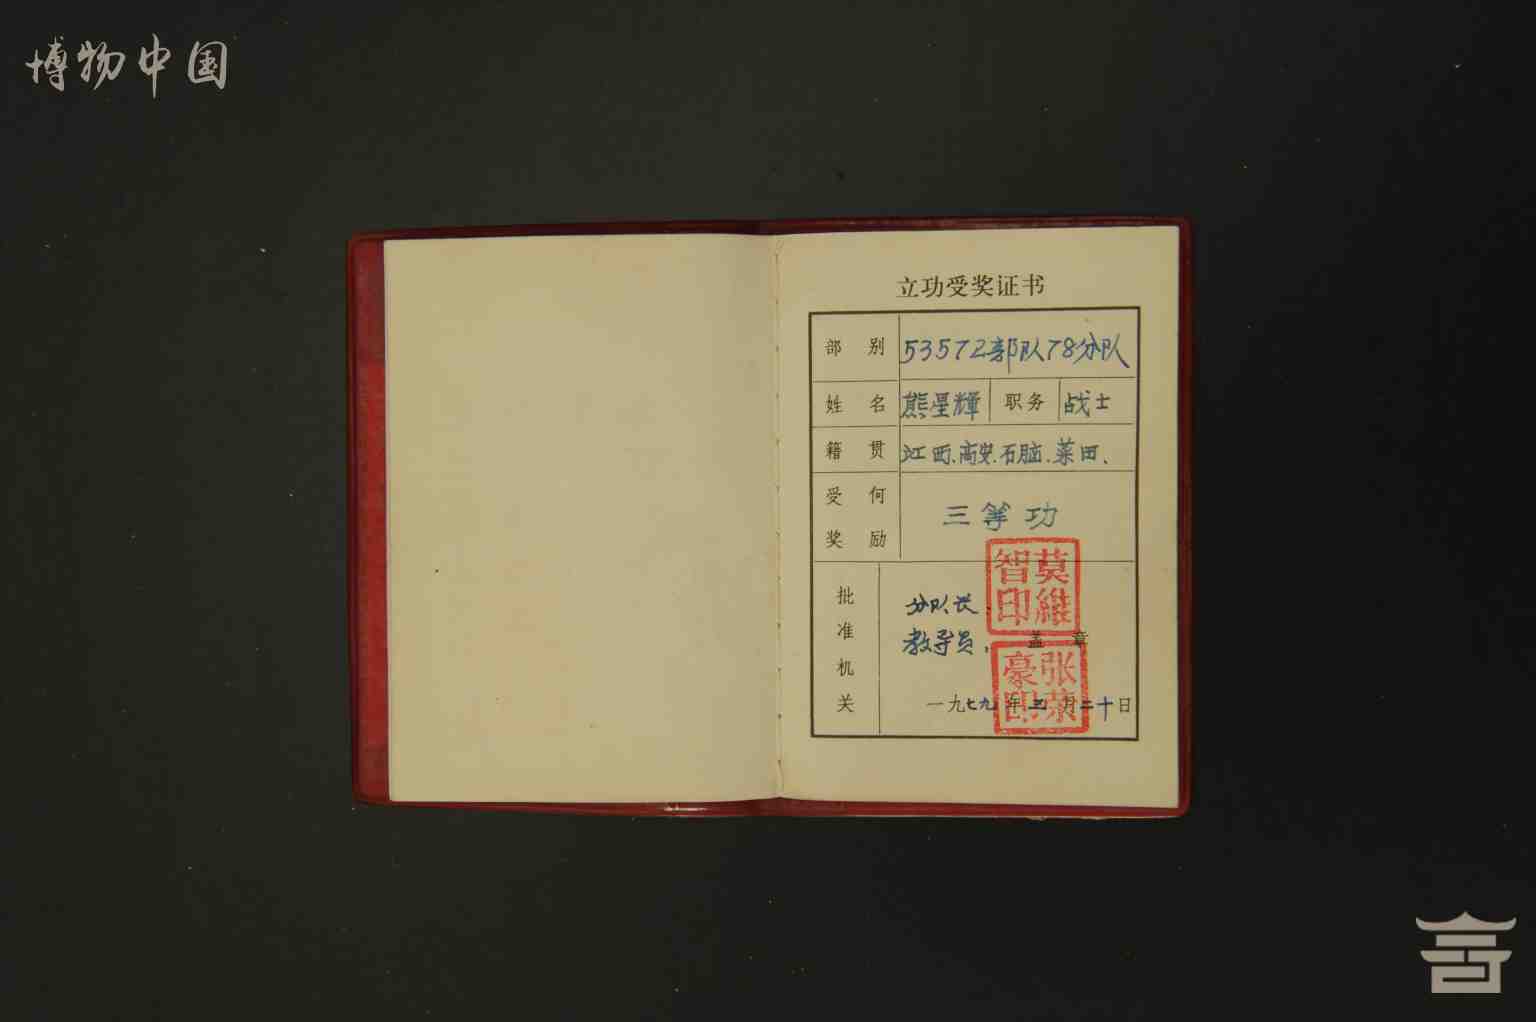 博物中国
立功受奖证书
部别 53572部队78分队
姓名 熊星輝 职务 战士
籍贯 江西、高安、石脑、菜田、
受何奖励 三等功
批准机关
分队长、
莫维智印
教导员，
盖章
张荣豪印
一九七九年三月二十日